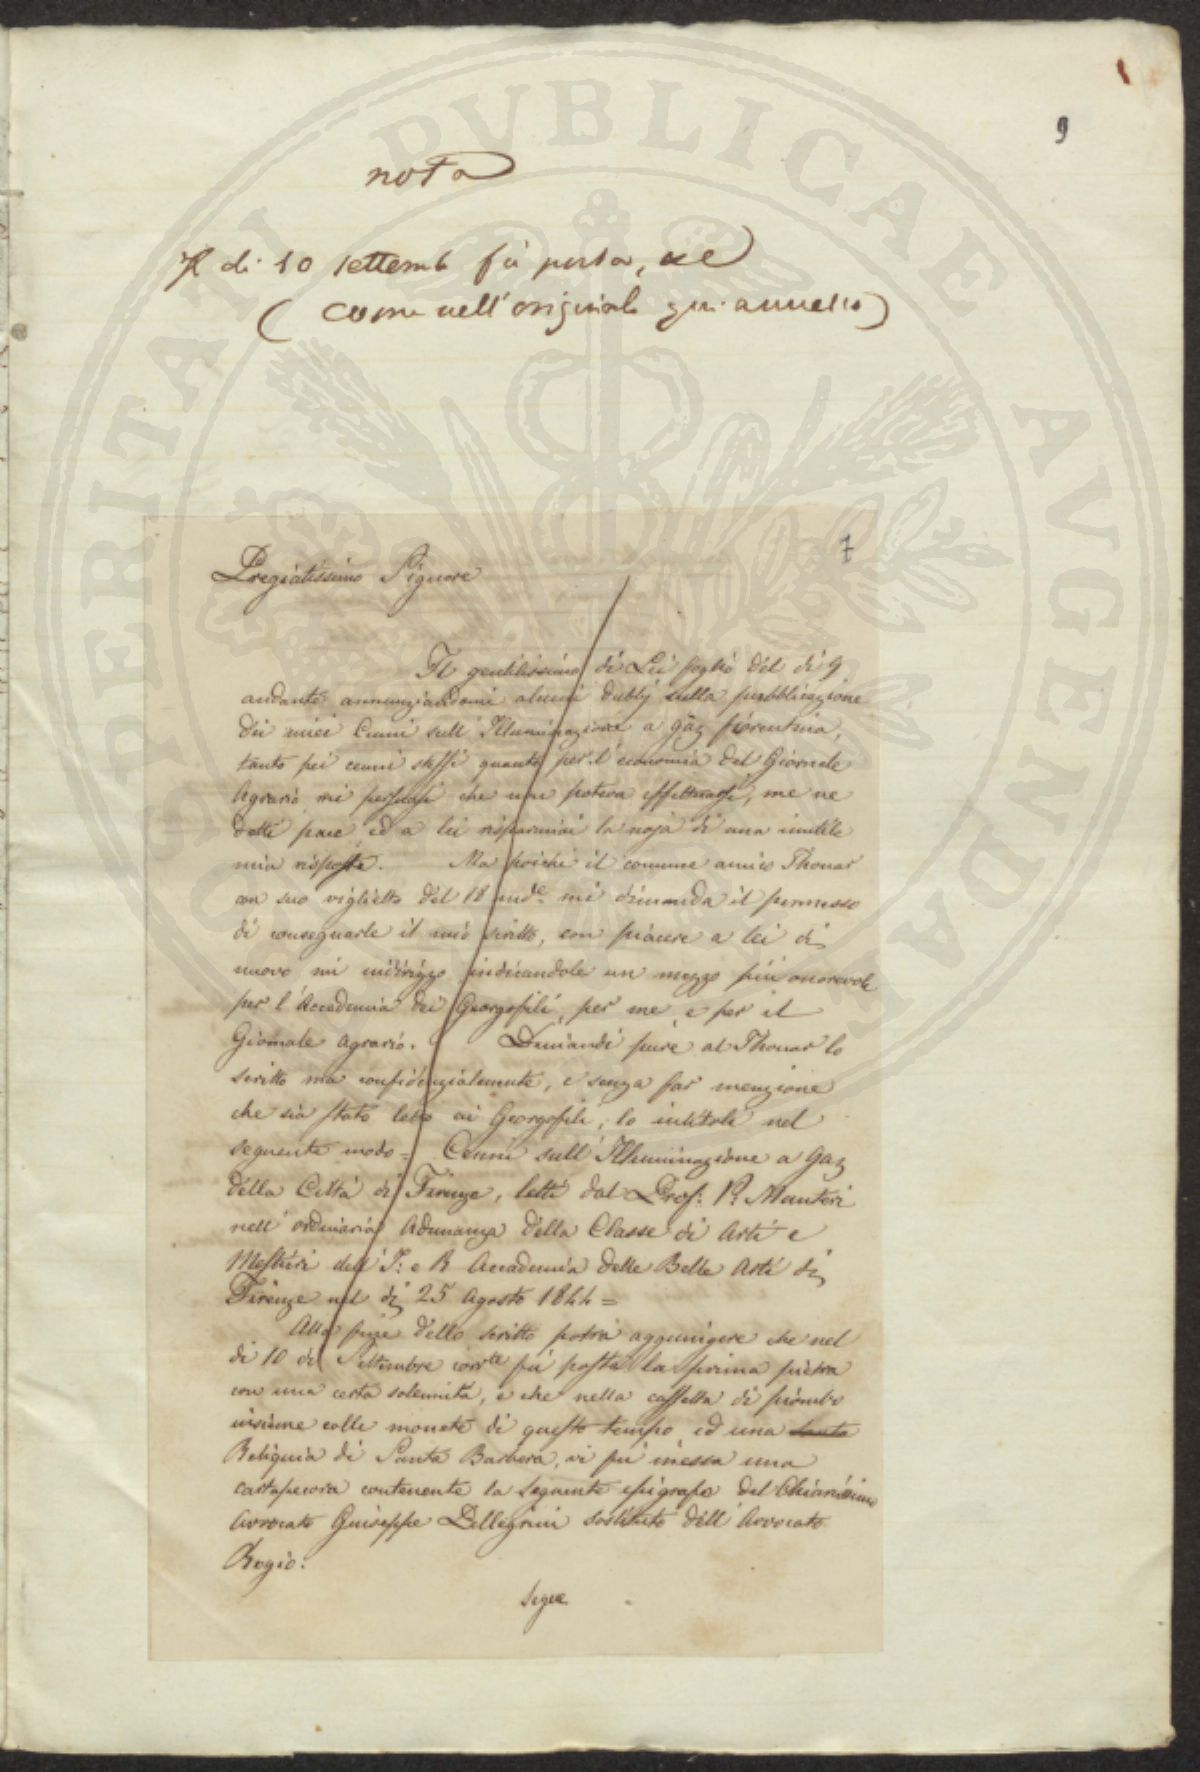 9
nota
Il di 10 settemb fù posta, ec
(come nell'originale qui annesso)
7
Pregiatissimo Signore
Il gentilissimo di Lei foglio del di 9
andante annunziandomi alcuni dubbj sulla pubblicazione
dei miei Cenni sull'Illuminazione a gaz fiorentina,
tanto pei cenni stessi quanto per l'economia del Giornale
Agrario mi persuasi che non poteva effettuarsi, me ne
detti pace ed a lei risparmiai la noja di una inutile
mia risposta. Ma poichè il comune amico Thouar
con suo viglietto del 18 and.e mi dimanda il permesso
di consegnarle il mio scritto, con piacere a lei di
nuovo mi indirizzo indicandole un mezzo più onorevole
per l'Accademia dei Georgofili, per me, e per il
Giornale Agrario. Dimandi pure al Thouar lo
scritto ma confidenzialmente, e senza far menzione
che sia stato letto ai Georgofili, lo intitoli nel
seguente modo = Cenni sull'Illuminazione a Gaz
della Città di Firenze, letti dal Prof. R. Manteri
nell'ordinaria Adunanza della Classe di Arti e
Mestieri dell'I. e R Accademia delle Belle Arti di
Firenze nel di 25 Agosto 1844 =
Alla fine dello scritto potrà aggiungere che nel
di 10 di Settembre corr.te fù posta la prima pietra
con una certa solennità, e che nella cassetta di piombo
insieme colle monete di questo tempo, ed una santa
Reliquia di Santa Barbera, vi fù messa una
cartapecora contenente la seguente epigrafe del Chiarissimo
Avvocato Guiseppe Pellegrini sostituto dell'Avvocato
Regio.
Segue
PROSPERITATI PVBLICAE AVGENDAE